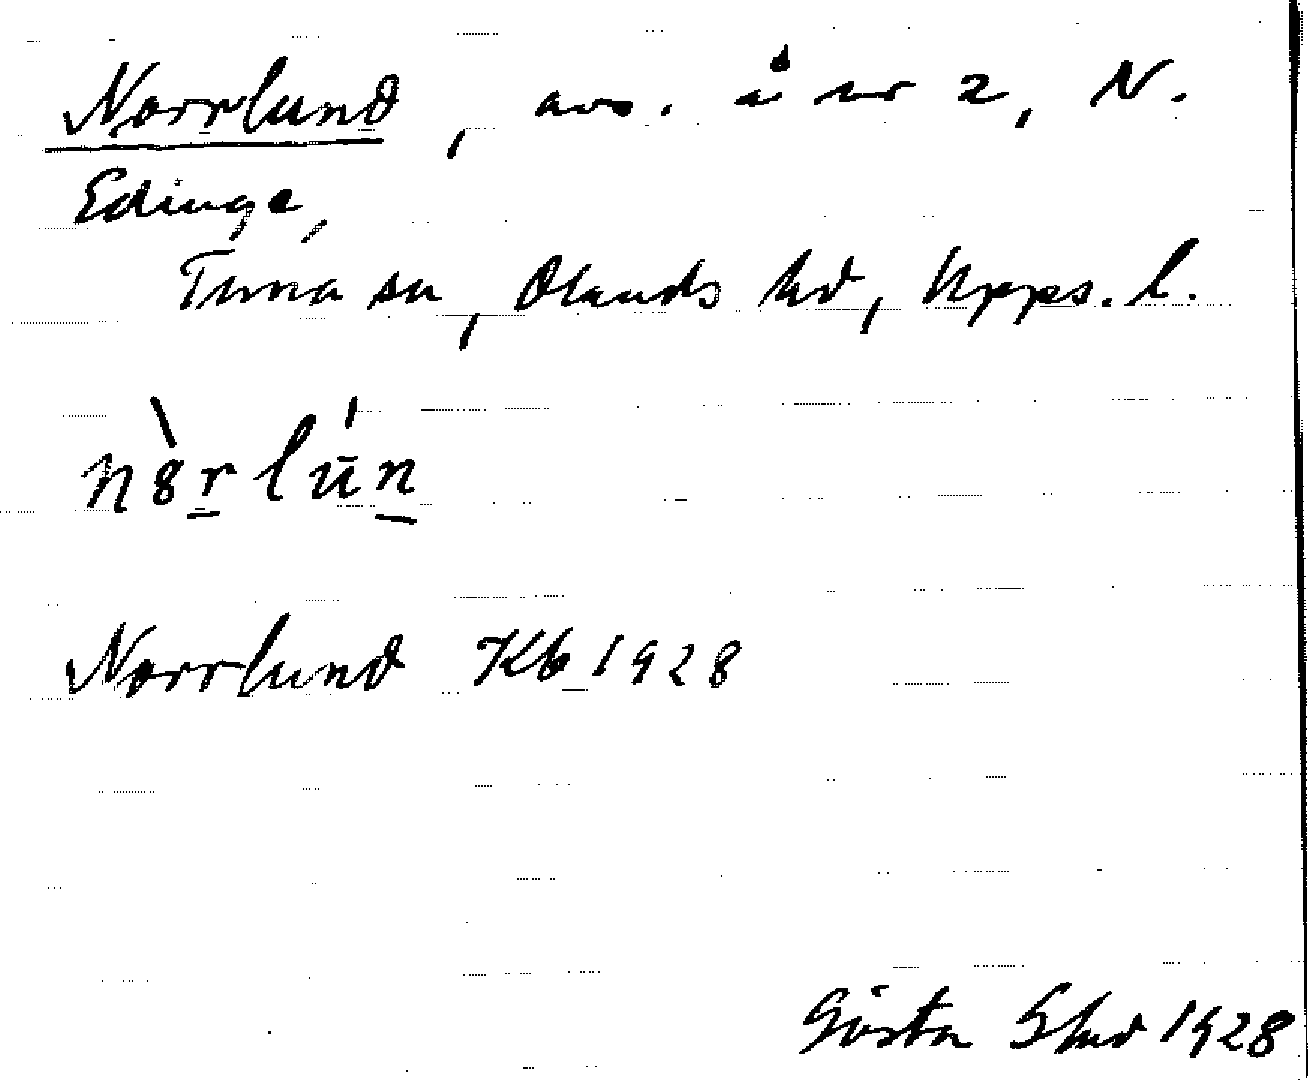 Norrlund, avs. å nr 2, N.
Edinge,
Tuna sn, Olands hd, Upps. l.
Norrlund Kb 1928
Gösta 1928